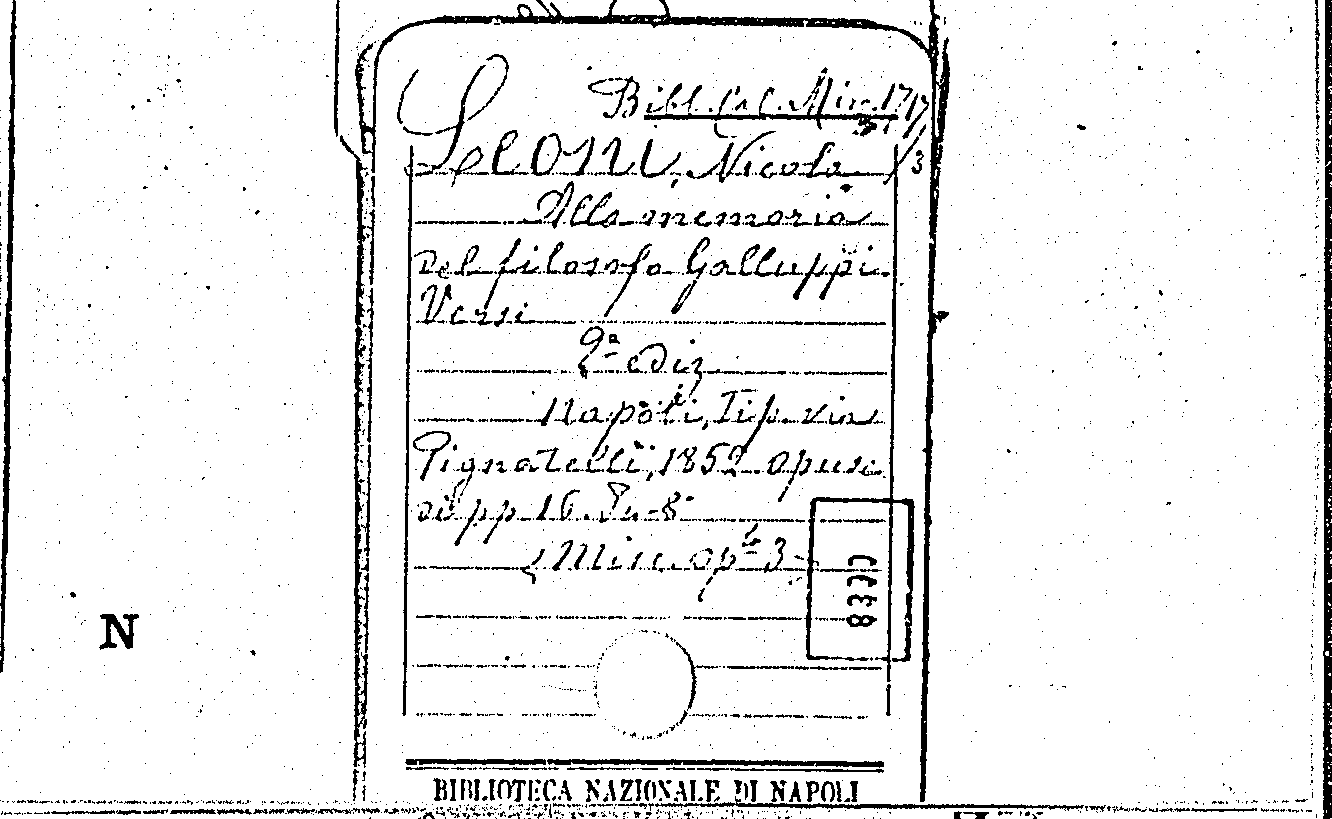 Bibl. Misc. 17
3
Leoni, Nicola
Alla memoria
del filosofo Galluppi.
Versi
2ª ediz
Napoli, Tip. via
Pignatelli, 1852 opusc
di pp 16. In-8°
(Misc. opᶜ 3
N
BIBLIOTECA NAZIONALE DI NAPOLI